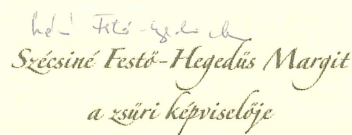 Szécsiné Festő-Hegedűs Margit
a zsűri képviselője